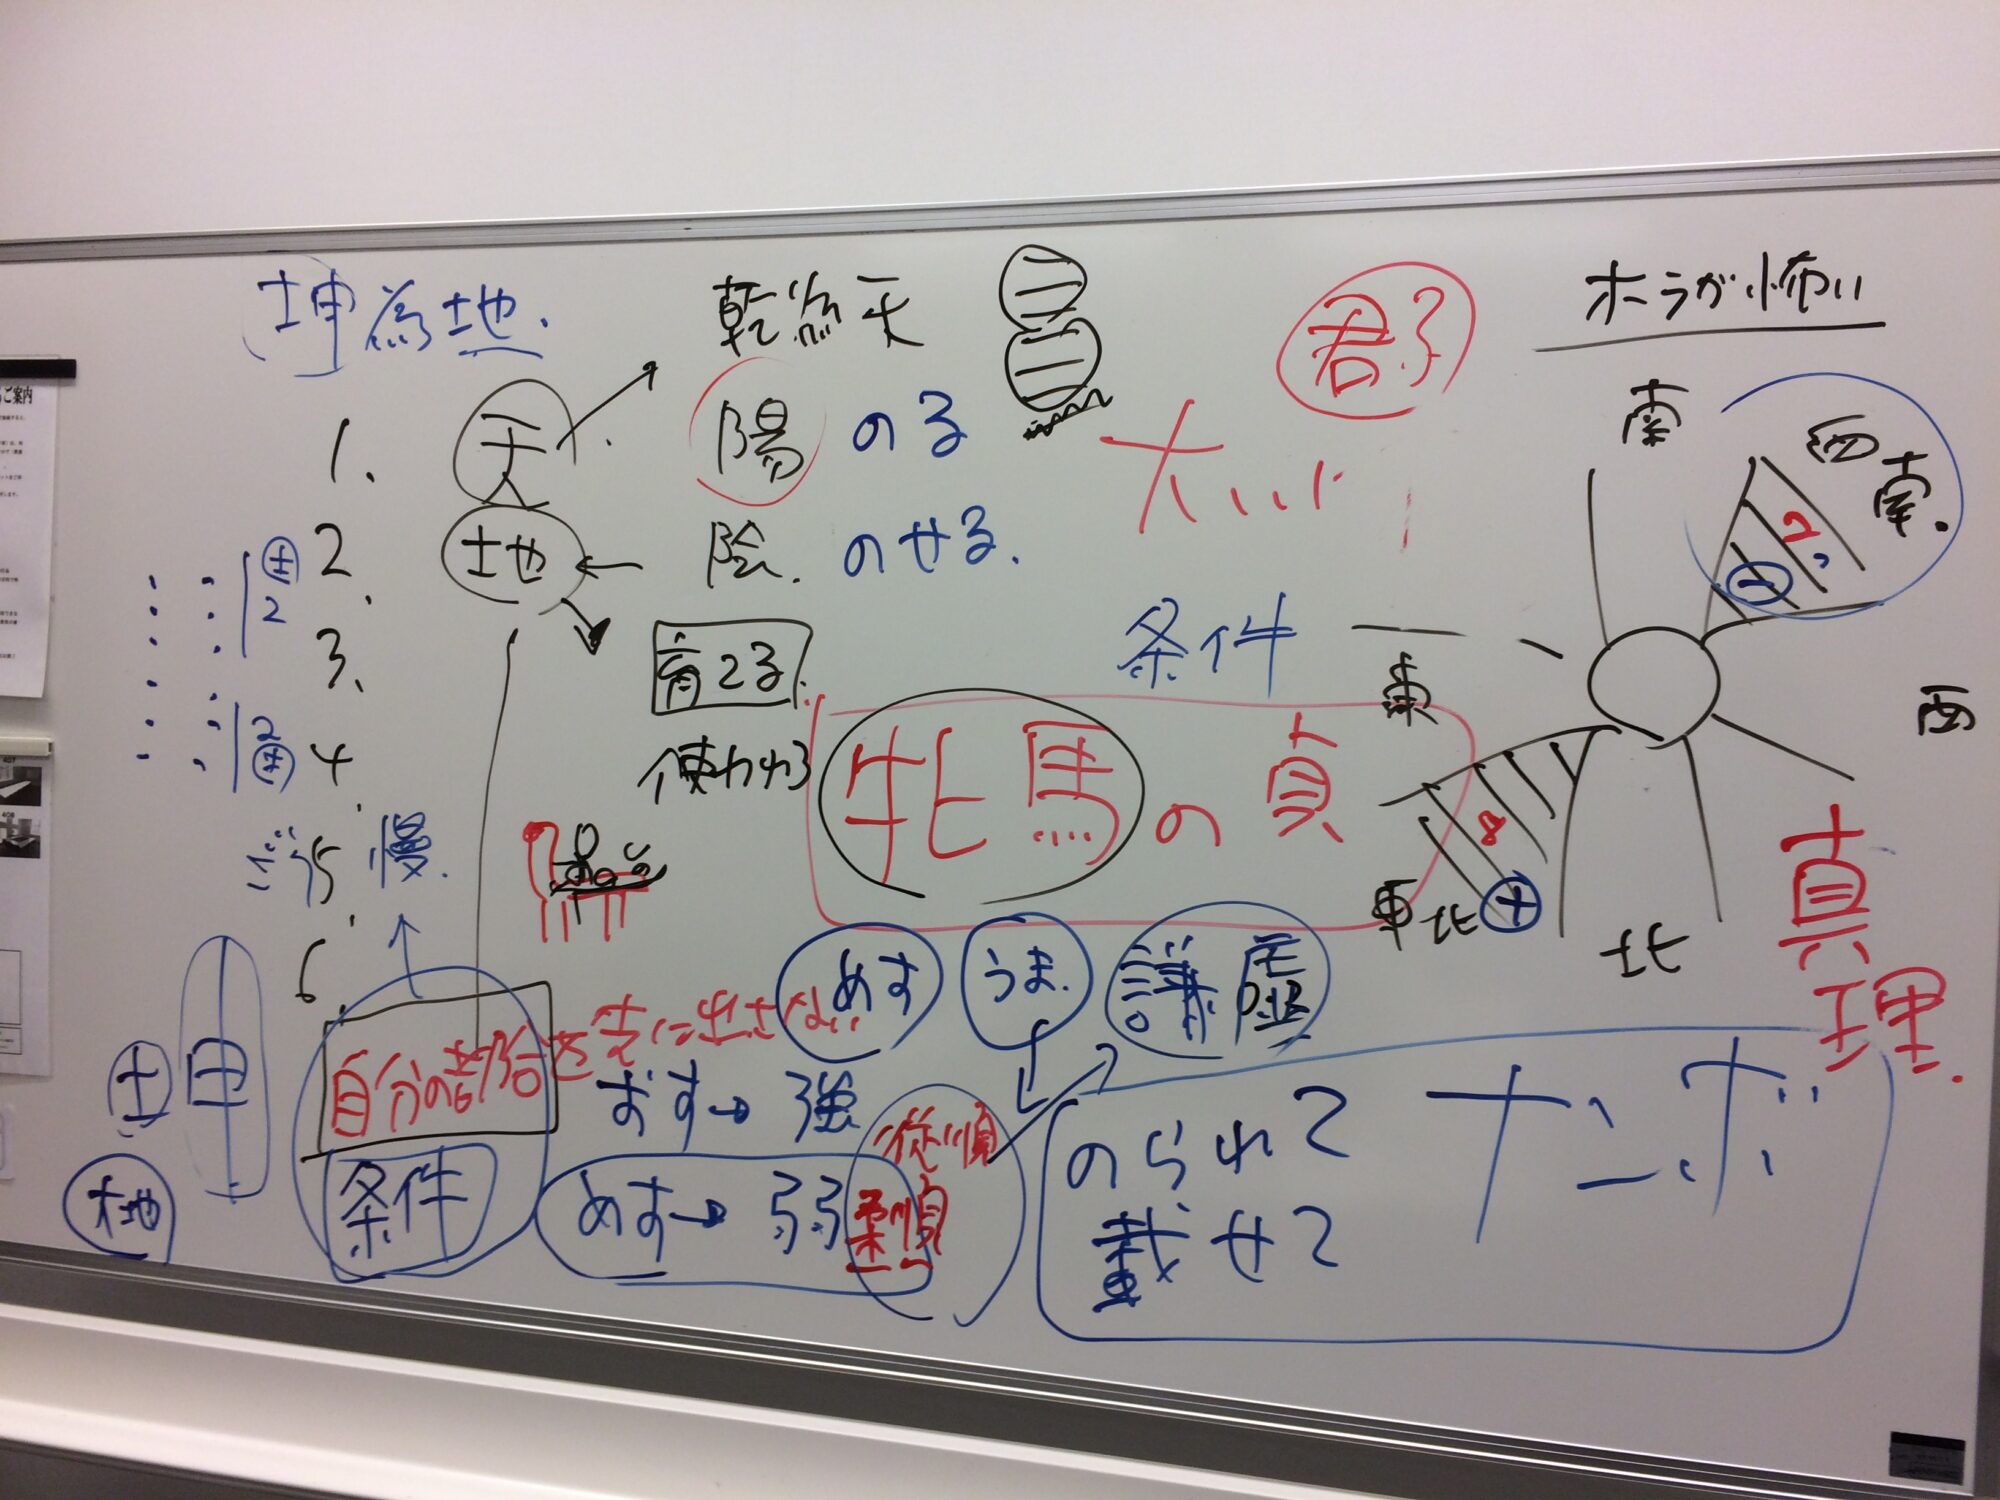 坤為地.
乾為天
君子
ホラが怖い
1.
天
人
陽 のる
大
南
西南.
2.
地
陰. のせる.
土
2
3.
育てる.
条件
東
西
2
土
4.
使われる
牝馬の貞
8
ごう慢.
5.
東北
+
北
真理.
6.
めす
うま.
謙虚
土
申
自分の
を表に出さない
おす→強
従順
土地
条件
めす→弱
柔順
のられて
載せて
ナンボ
ご案内